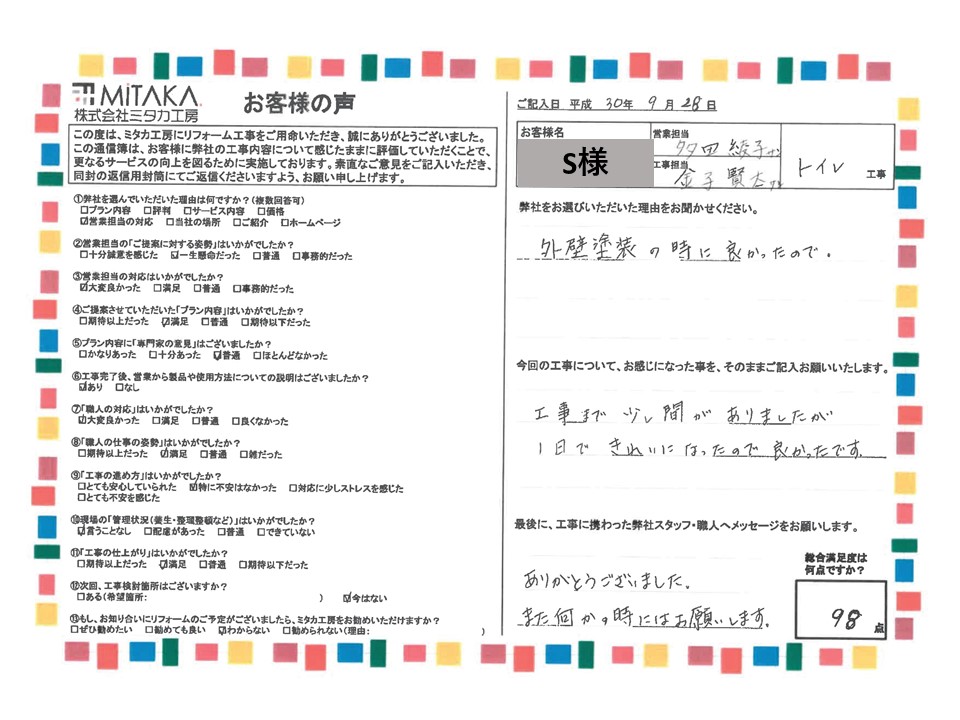 MiTAKA
株式会社ミタカ工房
お客様の声
この度は、ミタカ工房にリフォーム工事をご用命いただき、誠にありがとうございました。
この通信簿は、お客様に弊社の工事内容について感じたままに評価していただくことで、
更なるサービスの向上を図るために実施しております。素直なご意見をご記入いただき、
同封の返信用封筒にてご返信くださいますよう、お願い申し上げます。
①弊社を選んでいただいた理由は何ですか？(複数回答可)
□プラン内容 □評判 □サービス内容 □価格
☑営業担当の対応 □当社の場所 □ご紹介 □ホームページ
②営業担当の「ご提案に対する姿勢」はいかがでしたか？
□十分誠意を感じた ☑一生懸命だった □普通 □事務的だった
③営業担当の対応はいかがでしたか？
☑大変良かった □満足 □普通 □事務的だった
④ご提案させていただいた「プラン内容」はいかがでしたか？
□期待以上だった ☑満足 □普通 □期待以下だった
⑤プラン内容に「専門家の意見」はございましたか？
□かなりあった □十分あった ☑普通 □ほとんどなかった
⑥工事完了後、営業から製品や使用方法についての説明はございましたか？
☑あり □なし
⑦「職人の対応」はいかがでしたか？
☑大変良かった □満足 □普通 □良くなかった
⑧「職人の仕事の姿勢」はいかがでしたか？
□期待以上だった ☑満足 □普通 □雑だった
⑨「工事の進め方」はいかがでしたか？
□とても安心していられた ☑特に不安はなかった □対応に少しストレスを感じた
□とても不安を感じた
⑩現場の「管理状況(養生・整理整頓など)」はいかがでしたか？
☑言うことなし □配慮があった □普通 □できていない
⑪「工事の仕上がり」はいかがでしたか？
□期待以上だった ☑満足 □普通 □期待以下だった
⑫次回、工事検討箇所はございますか？
□ある(希望箇所: ) ☑今はない
⑬もし、お知り合いにリフォームのご予定がございましたら、ミタカ工房をお勧めいただけますか？
□ぜひ勧めたい □勧めても良い ☑わからない □勧められない(理由: )
ご記入日 平成 30年 9月 28日
お客様名
S様
営業担当
多田 綾子さん
工事担当
金子 賢太さん
トイレ 工事
弊社をお選びいただいた理由をお聞かせください。
外壁塗装の時に良かったので。
今回の工事について、お感じになった事を、そのままご記入お願いいたします。
工事まで少し間がありましたが
1日できれいになったので良かったです。
最後に、工事に携わった弊社スタッフ・職人へメッセージをお願いします。
ありがとうございました。
また何かの時にはお願いします。
総合満足度は
何点ですか？
98 点